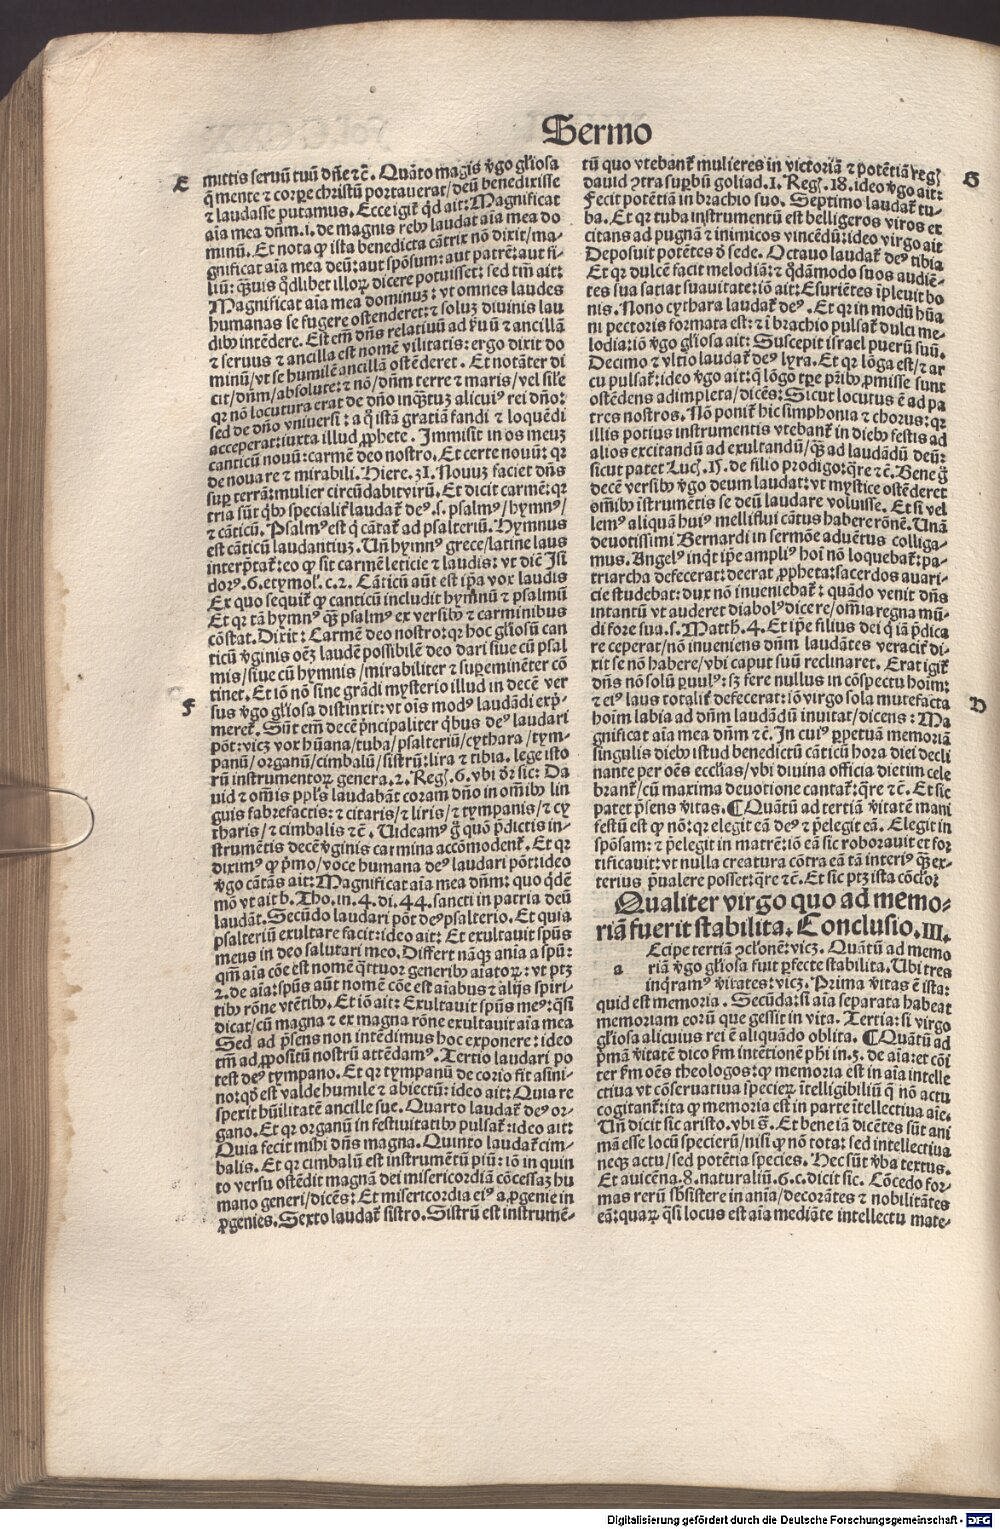 Sermo
E
mittis seruū tuū dn̄e ⁊c̄. Quāto magis v̓go glīosa
q̄ mente ⁊ corpe christū portauerat/deū benedixisse
⁊ laudasse putamus. Ecce igit̄ qd̓ ait: Magnificat
aīa mea dn̄m.i. de magnis rebꝰ laudat aīa mea do
minū. Et nota ꝙ ista benedicta cātrix nō dixit/ma-
gnificat aīa mea deū: aut spōsum: aut patrē: aut fi-
liū: quis qd̓libet illoꝝ dicere potuisset: sed tm̄ ait:
Magnificat aīa mea dominuz: vt omnes laudes
humanas se fugere ostenderet: ⁊ soluz diuinis lau
dibꝰ intēdere. Est em̄ dn̄s relatiuū ad s̓uū ⁊ ancillā
⁊ seruus ⁊ ancilla est nomē vilitatis: ergo dixit do
minū/vt se humilē ancillā ostēderet. Et notāter di
cit/dn̄m/absolute: ⁊ nō/dn̄m terre ⁊ maris/vel sil̓e
qꝛ nō locutura erat de dn̄o inqꝫtuz alicuiꝰ rei dn̄o:
sed de dn̄o vniuersi: a q̊ istā gratiā fandi ⁊ loquēdi
acceperat: iuxta illud ꝓphete. Immisit in os meuz
canticū nouū: carmē deo nostro. Et certe nouū: qꝛ
de noua re ⁊ mirabili. Hiere.31. Nouuz faciet dn̄s
suꝑ terrā: mulier circūdabit virū. Et dicit carmē: qꝛ
tria sūt qbꝰ specialit̄ laudat̄ deꝰ.s. psalmꝰ/hymnꝰ/
⁊ cāticū. Psalmꝰ est q̓ cātat̄ ad psalteriū. Hymnus
est cāticū laudantiuz. Un̄ hymnꝰ grece/latine laus
interp̄tat̄: eo ꝙ sit carmē leticie ⁊ laudis: vt dic̄ Isi
dorꝰ.6.etymol̓.c.2. Cāticū aūt est ip̄a vox laudis
Ex quo sequit̄ ꝙ canticū includit hymnū ⁊ psalmū
Et qꝛ tā hymnꝰ qꝫ psalmꝰ ex versibꝰ ⁊ carminibus
cōstat. Dixit: Carmē deo nostro: qꝛ hoc glīosū can
ticū v̓ginis oēz laudē possibilē deo dari siue cū psal
mis/siue cū hymnis/mirabiliter ⁊ suꝑeminēter cō
tinet. Et iō nō sine grādi mysterio illud in decē ver
F
sus v̓go glīosa distinxit: vt ois modꝰ laudādi exp̄-
meret̄. Sūt em̄ decē p̄ncipaliter qbus deꝰ laudari
pōt: vicz vox hūana/tuba/psalteriū/cythara/tym-
panū/organū/cimbalū/sistrū: lira ⁊ tibia. lege isto
rū instrumentoꝝ genera.2. Reg.6. vbi dr̄ sic: Da
uid ⁊ om̄is ppl̓s laudabāt coram dn̄o in om̄ibꝰ lin
guis fabrefactis: ⁊ citaris/⁊ liris/⁊ tympanis/⁊ cy
tharis/⁊ cimbalis ⁊c̄. Uideamꝰ g̊ quō p̄dictis in-
strumētis decē v̓ginis carmina accōmodent̄. Et qꝛ
diximꝰ ꝙ p̓mo/voce humana deꝰ laudari pōt: ideo
v̓go cātās ait: Magnificat aīa mea dn̄m: quo qd̓ē
mō vt ait b. Tho. in.4. di.44. sancti in patria deū
laudāt. Secūdo laudari pōt deꝰ psalterio. Et quia
psalteriū exultare facit: ideo ait: Et exultauit spūs
meus in deo salutari meo. Differt nāqꝫ anīa a spū:
qm̄ aīa cōe est nomē q̓ttuor generibꝰ aīatoꝝ: vt ptꝫ
2. de aīa: spūs aūt nomē cōe est aīabus ⁊ alijs spiri-
tibꝰ rōne vtētibꝰ. Et iō ait: Exultauit spūs meꝰ: q̓si
dicat/cū magna ⁊ ex magna rōne exultauit aīa mea
Sed ad p̄sens non intēdimus hoc exponere: ideo
tm̄ ad ꝓpositū nostrū attēdamꝰ. Tertio laudari po
test deꝰ tympano. Et qꝛ tympanū de corio fit asini-
no: qd̓ est valde humile ⁊ abiectū: ideo ait: Quia re
spexit hūilitatē ancille sue. Quarto laudat̄ deꝰ or-
gano. Et qꝛ organū in festiuitatibꝰ pulsat̄: ideo ait:
Quia fecit mihi dn̄s magna. Quinto laudat̄ cim-
balis. Et qꝛ cimbalū est instrumētū piū: iō in quin
to versu ostēdit magnā dei misericordiā cōcessaz hu
mano generi/dicēs: Et misericordia eiꝰ a ꝓgenie in
ꝓgenies. Sexto laudat̄ sistro. Sistrū est instrumē-
tū quo vtebant̄ mulieres in victoriā ⁊ potētiā regꝭ
G
dauid ↄtra suꝑbū goliad.1. Reg.18. ideo v̓go ait:
Fecit potētiā in brachio suo. Septimo laudat̄ tu-
ba. Et qꝛ tuba instrumentū est belligeros viros ex
citans ad pugnā ⁊ inimicos vincēdū: ideo virgo ait
Deposuit potētes d̓ sede. Octauo laudat̄ deꝰ tibia
Et qꝛ dulcē facit melodiā: ⁊ q̊dāmodo suos audiē-
tes sua satiat suauitate: iō ait: Esuriētes īpleuit bo
nis. Nono cythara laudat̄ deꝰ. Et qꝛ in modū hūa
ni pectoris formata est: ⁊ ī brachio pulsat̄ dulci me-
lodia: iō v̓go glīosa ait: Suscepit israel puerū suū.
Decimo ⁊ vltīo laudat̄ deꝰ lyra. Et qꝛ lōga est/⁊ ar
cu pulsat̄: ideo v̓go ait: q̓ lōgo tꝑe pr̄ibꝰ ꝓmisse sunt
ostēdens adimpleta/dicēs: Sicut locutus ē ad pa
tres nostros. Nō ponit̄ hic simphonia ⁊ chorus: qꝛ
illis potius instrumentis vtebant̄ in diebꝰ festis ad
alios excitandū ad exultandū/qꝫ ad laudādū deū:
sicut patet Luc.15. de filio prodigo: q̄re ⁊c̄. Bene g̊
decē versibꝰ v̓go deum laudat: vt mystice ostēderet
om̄ibꝰ īstrumētis se deū laudare voluisse. Et si vel
lemꝰ aliquā huiꝰ melliflui cātus habere rōnē. Unā
deuotissimi Bernardi in sermōe aduētus colliga-
mus. Angelꝰ inqt ip̄e ampliꝰ hoī nō loquebat̄: pa-
triarcha defecerat: deerat ꝓpheta: sacerdos auari-
cie studebat: dux nō inueniebat̄: quādo venit dn̄s
intantū vt auderet diabolꝰ dicere/om̄ia regna mū-
di fore sua.s. Matth.4. Et ip̄e filius dei q̓ iā p̄dica
re ceperat/nō inueniens dn̄m laudātes veracit̄ di-
xit se nō habere/vbi caput suū reclinaret. Erat igit̄
dn̄s nō solū paruulꝰ: sꝫ fere nullus in cōspectu hoīm:
D
⁊ eiꝰ laus totalit̄ defecerat: iō virgo sola mutefacta
hoīm labia ad dn̄m laudādū inuitat/dicens: Ma
gnificat aīa mea dn̄m ⁊c̄. In cuiꝰ ꝑpetuā memoriā
singulis diebꝰ istud benedictū cāticū hora diei decli
nante per oēs ecclīas/vbi diuina officia dietim cele
brant̄/cū maxima deuotione cantat̄: q̄re ⁊c̄. Et sic
patet p̄sens v̓itas. ¶ Quātū ad tertiā v̓itatē mani
festū est ꝙ nō: qꝛ elegit eā deꝰ ⁊ p̄elegit eā. Elegit in
spōsam: ⁊ p̄elegit in matrē: iō eā sic roborauit et for
tificauit: vt nulla creatura cōtra eā tā interiꝰ qꝫ ex-
terius p̄ualere posset: q̄re ⁊c̄. Et sic ptꝫ ista cōclo̓
Qualiter virgo quo ad memo-
riā fuerit stabilita. Conclusio. III.
a
Ccipe tertiā ↄclonē: vicz. Quātū ad memo
riā v̓go glīosa fuit ꝑfecte stabilita. Ubi tres
inq̓ramꝰ v̓itates: vicz. Prima v̓itas ē ista:
quid est memoria. Secūda: si aīa separata habeat
memoriam eorū que gessit in vita. Tertia: si virgo
glīosa alicuius rei ē aliquādo oblita. ¶ Quātū ad
p̓mā v̓itatē dico s̓m intētionē phī in.3. de aīa: et cōi
ter s̓m oēs theologos: ꝙ memoria est in aīa intelle
ctiua vt cōseruatiua specieꝝ ītelligibiliū q̄ nō actu
cogitant̄: ita ꝙ memoria est in parte ītellectiua aīe.
Un̄ dicit sic aristo. vbi s̄. Et bene iā dicētes sūt ani
mā esse locū specierū/nisi ꝙ nō tota: sed intellectiua
neqꝫ actu/sed potētia species. Hec sūt v̓ba textus.
Et auicēna.8. naturaliū.6.c. dicit sic. Cōcedo for-
mas rerū sb̓sistere in anīa/decorātes ⁊ nobilitātes
eā: quaꝝ q̓si locus est aīa mediāte intellectu mate-
Digitalisierung gefördert durch die Deutsche Forschungsgemeinschaft - DFG